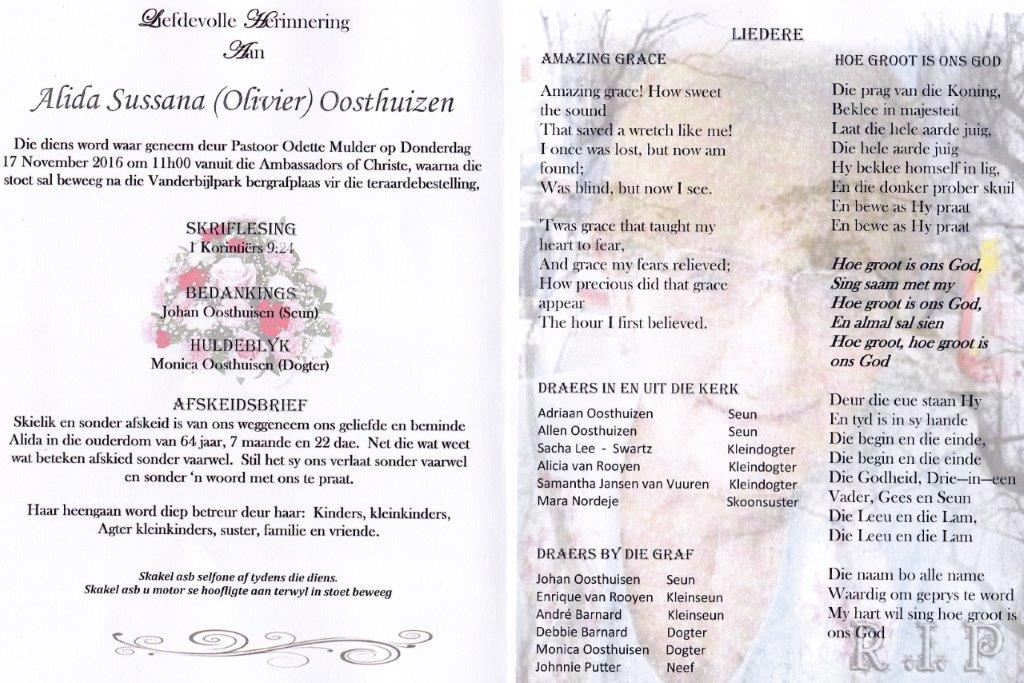 Liefdevolle Herinnering
Aan
Alida Sussana (Olivier) Oosthuizen
Die diens word waar geneem deur Pastoor Odette Mulder op Donderdag
17 November 2016 om 11h00 vanuit die Ambassadors of Christe, waarna die
stoet sal beweeg na die Vanderbijlpark bergrafplaas vir die teraardebestelling,
SKRIFLESING
1 Korintiërs 9:24
BEDANKINGS
Johan Oosthuisen (Seun)
HULDEBLYK
Monica Oosthuisen (Dogter)
AFSKEIDSBRIEF
Skielik en sonder afskeid is van ons weggeneem ons geliefde en beminde
Alida in die ouderdom van 64 jaar, 7 maande en 22 dae.  Net die wat weet
wat beteken afskied sonder vaarwel.  Stil het sy ons verlaat sonder vaarwel
en sonder ‘n woord met ons te praat.
Haar heengaan word diep betreur deur haar:  Kinders, kleinkinders,
Agter kleinkinders, suster, familie en vriende.
Skakel asb selfone af tydens die diens.
Skakel asb u motor se hoofligte aan terwyl in stoet beweeg
LIEDERE
AMAZING GRACE
Amazing grace! How sweet
the sound
That saved a wretch like me!
I once was lost, but now am
found;
Was blind, but now I see.
'Twas grace that taught my
heart to fear,
And grace my fears relieved;
How precious did that grace
appear
The hour I first believed.
DRAERS IN EN UIT DIE KERK
Adriaan Oosthuizen Seun
Allen Oosthuizen Seun
Sacha Lee - Swartz Kleindogter
Alicia van Rooyen Kleindogter
Samantha Jansen van Vuuren Kleindogter
Mara Nordeje Skoonsuster
DRAERS BY DIE GRAF
Johan Oosthuisen Seun
Enrique van Rooyen Kleinseun
André Barnard Kleinseun
Debbie Barnard Dogter
Monica Oosthuisen Dogter
Johnnie Putter Neef
HOE GROOT IS ONS GOD
Die prag van die Koning,
Beklee in majesteit
Laat die hele aarde juig,
Die hele aarde juig
Hy beklee homself in lig,
En die donker prober skuil
En bewe as Hy praat
En bewe as Hy praat
Hoe groot is ons God,
Sing saam met my
Hoe groot is ons God,
En almal sal sien
Hoe groot, hoe groot is
ons God
Deur die eue staan Hy
En tyd is in sy hande
Die begin en die einde,
Die begin en die einde
Die Godheid, Drie—in—een
Vader, Gees en Seun
Die Leeu en die Lam,
Die Leeu en die Lam
Die naam bo alle name
Waardig om geprys te word
My hart wil sing hoe groot is
ons God
R.I.P